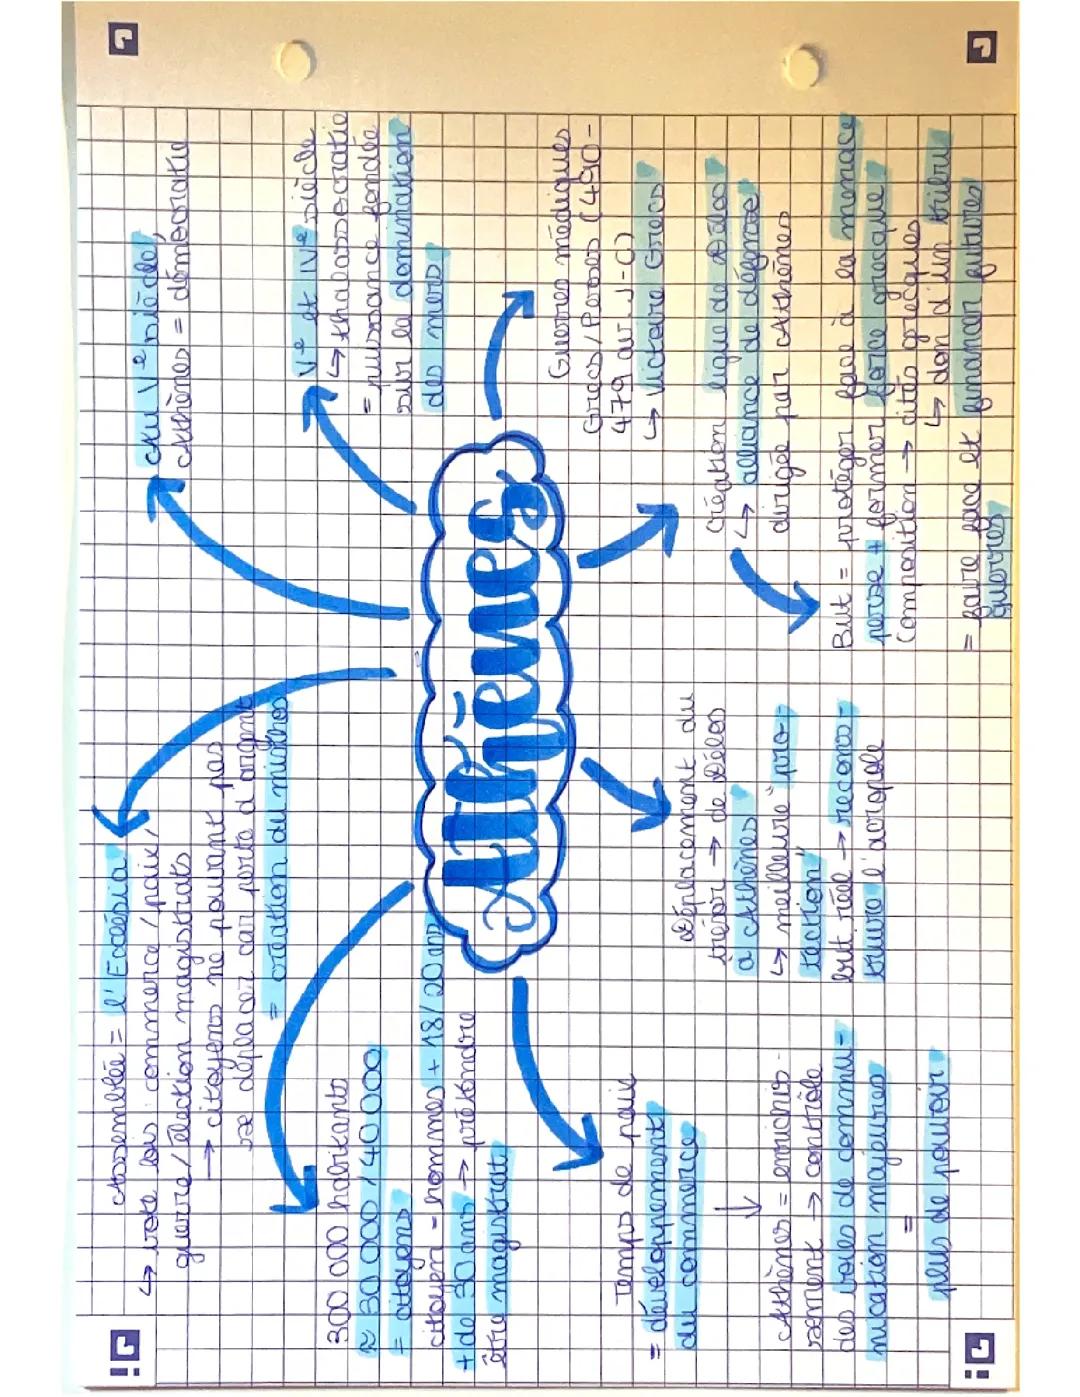 Athènes
Assemblée = l'Ecclésia
↳ vote lois: commerce/paix/
guerre/élection magistrats
→ citoyens ne pouvant pas
se déplacer car perte d'argent
= création du misthos
Au Vᵉ siècle,
Athènes = démocratie
Vᵉ et IVᵉ siècle
↳ thalassocratie
= puissance fondée
sur la domination
des mers
Guerres médiques
Grecs/Perses (490-
479 av. J-C)
↳ Victoire Grecs
Création ligue de Délos
↳ alliance de défense
dirigée par Athènes
But = protéger face à la menace
perse + former force grecque
Composition → cités grecques
↳ don d'un tribu
= faire face et financer futures
guerres
Déplacement du
trésor → de Délos
à Athènes
↳ meilleure "pro-
tection"
but réel → recons-
truire l'acropole
Temps de paix
= développement
du commerce
↓
Athènes = enrichis-
sement → contrôle
des voies de commu-
nication majeures
=
plus de pouvoir
300 000 habitants
≈ 30 000 / 40 000
= citoyens
citoyen = hommes + 18/20 ans
+ de 30 ans → prétendre
être magistrat